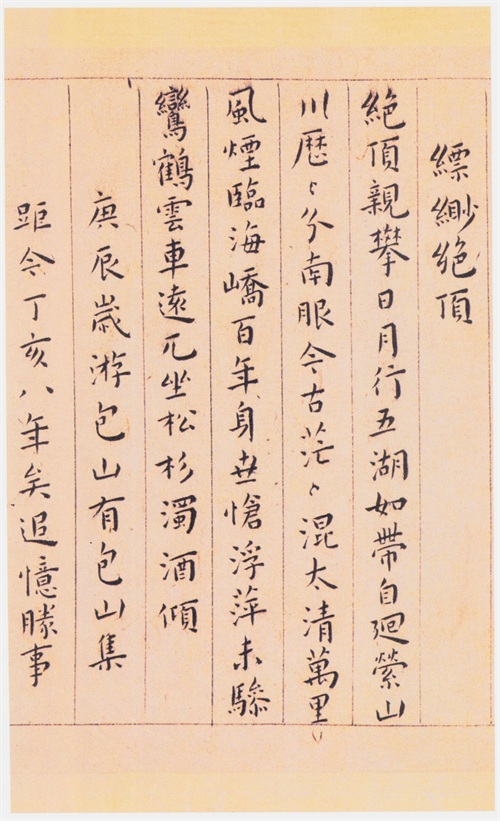 縹緲絶頂
絶頂親攀日月行五湖如帶自廻縈山
川歷〻分南眼今古茫〻混太清萬里
風煙臨海嶠百年身世愴浮萍未驂
鸞鶴雲車遠兀坐松杉濁酒傾
庚辰歲游包山有包山集
距今丁亥八年矣追憶勝事